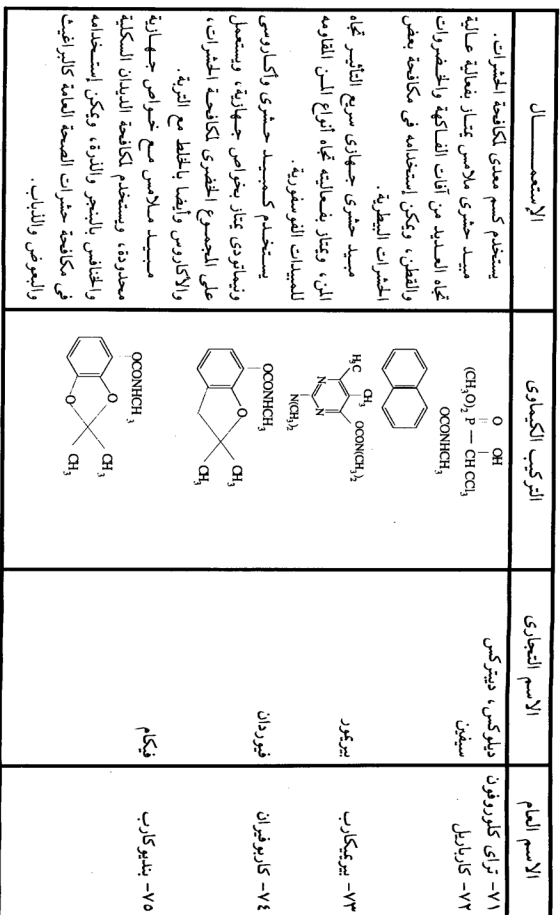 الاسم العام
الاسم التجارى
التركيب الكيماوى
الإستعمـــــــال
٧١- تراى كلوروفون
ديلوكس، ديبتركس
O OH
(CH₃O)₂ P — CHCCl₃
يستخدم كسم معدى لمكافحة الحشرات.
٧٢- كارباريل
سيفين
OCONHCH₃
مبيد حشرى ملامس يمتاز بفعالية عالية
تجاه العديد من آفات الفاكهة والخضروات
والقطن، ويمكن إستخدامه فى مكافحة بعض
الحشرات البيطرية.
٧٣- بيريميكارب
بيريمور
H₃C
CH₃
OCON(CH₃)₂
N
N
N(CH₃)₂
مبيد حشرى جهازى سريع التأثير تجاه
المن، ويمتاز بفعاليته تجاه أنواع المن المقاومه
للمبيدات الفوسفورية.
٧٤- كاربوفيران
فيوردان
OCONHCH₃
O
CH₃
CH₃
يستخدم كمبيد حشرى وأكاروسى
ونيماتودى يمتاز بخواص جهازية، ويستعمل
على المجموع الخضرى لمكافحة الحشرات،
والأكاروس وأيضا بالخلط مع التربة.
٧٥- بنديوكارب
فيكام
OCONHCH₃
O
O
CH₃
CH₃
مبيد ملامس مع خواص جهازية
محدودة، ويستخدم لمكافحة الديدان السلكية
والخنافس بالبنجر والذرة، ويمكن إستخدامه
فى مكافحة حشرات الصحة العامة كالبراغيث
والبعوض والذباب.